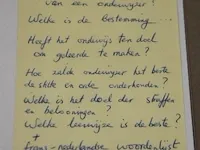 van een onderwijzer!
Welke is de Bestemming....
Heeft het onderwijs ten doel
om geleerde te maken?
Hoe zalde onderwijzer het beste
de stilte en orde onderhouden?
Welke is het doel der straffen
en belooningen?
Welke leerwijze is de beste?
frans-nederlandse woordenlijst